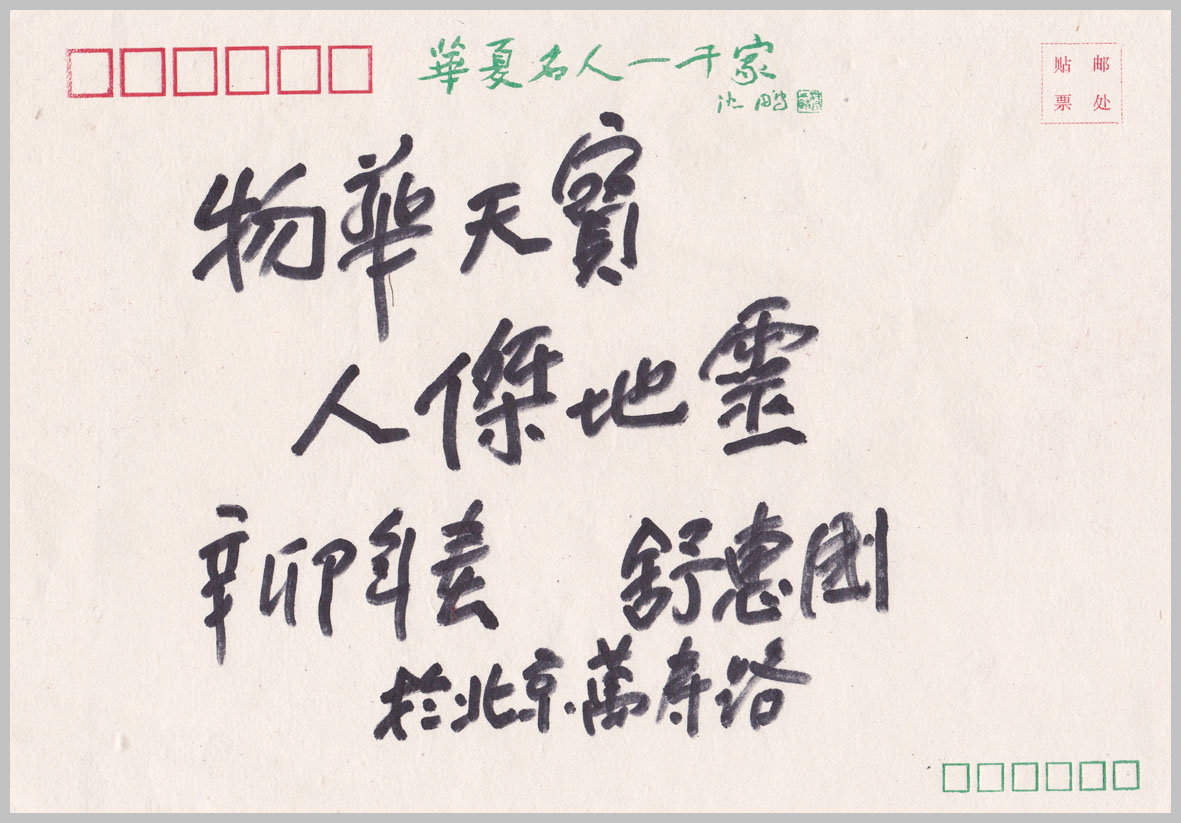 華夏名人一千家
沈鹏
贴 邮
票 处
物華天寶
人傑地靈
辛卯年春 舒惠国
於北京萬寿路